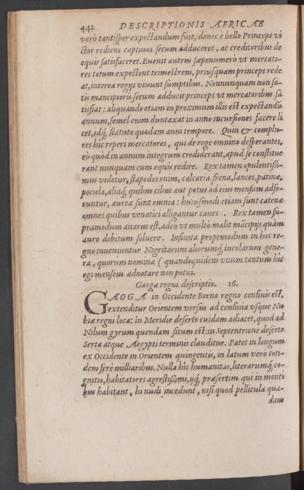 442 DESCRIPTIONIS AFRICAE
verò tantisper expectandum sint, donec è bello Princeps vi
ctor rediens captiuos secum adduceret, ac creditoribus de
equis satisfaceret. Euenit autem sæpenumerò ut mercato-
res totum expectent trimestrem, priusquam princeps rede
at, interea regijs viuunt sumptibus. Nonnunquam non sa-
tis mancipiorū secum adducit princeps ut mercatoribus sa
tisfiat: aliquando etiam in proximum illis est expectandū
annum, semel enim duntaxat in anno incursiones facere li
cet, idq́; statuto quodam anni tempore. Quin & complu-
res hic reperi mercatores, qui de rege omnino desperantes,
eò quòd in annum integrum crediderant, apud se constitue
rant nunquam cum equis redire. Rex tamen opulentissi-
mus videtur, stapodes enim, calcaria, frena, lances, patinæ,
pocula, aliaq́; quibus cibus aut potus ad eius mensam adfe-
runtur, aurea sunt omnia: huiusmodi etiam sunt catenæ
omnes quibus venatici alligantur canes. Rex tamen su-
pramodum auarus est, adeò vt multò malit mācipijs quàm
auro debitum soluere. Infinita propemodum in hoc re-
gno inueniuntur Nigritarum aliorumq́; incolarum gene-
ra, quorum nomina (quandoquidem vnum tantum hîc
egi mensem) adnotare non potui.
Gaoga regni descriptio. 16.
GAOGA in Occidente Borno regno confinis est,
extenditur Orientem versus ad confinia vsque Nu
biæ regni loca: in Meridie deserto cuidam adiacet, quod ad
Nilum gyrum quendam situm est: in Septentrione deserto
Serta atque Aegypti terminis clauditur. Patet in longum
ex Occidente in Orientem quingentis, in latum verò toti-
dem ferè milliaribus. Nulla hîc humanitas, literarumq́; co-
gnitio, habitatores agrestissimi, ijq́; præsertim qui in monti
bus habitant, hi nudi incedunt, nisi quod pellicula qua-
dam